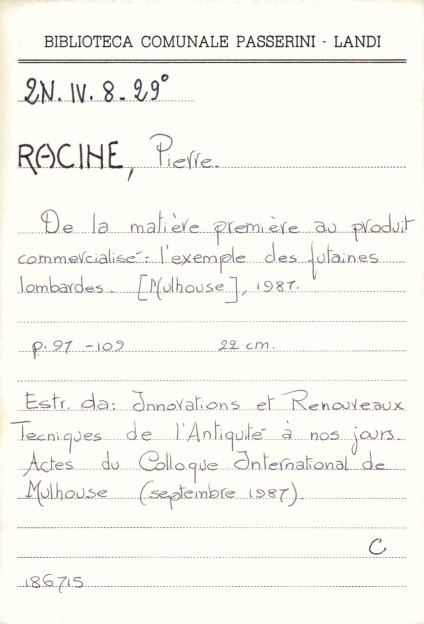 BIBLIOTECA COMUNALE PASSERINI - LANDI
2N. IV. 8 - 29°
RACINE, Pierre.
De la matière première au produit
commercialisé : l'exemple des futaines
lombardes. [Mulhouse], 1987.
p. 97 - 109 22 cm.
Estr. da: Innovations et Renouveaux
Tecniques de l'Antiquité à nos jours.
Actes du Colloque International de
Mulhouse (septembre 1987).
C
186715